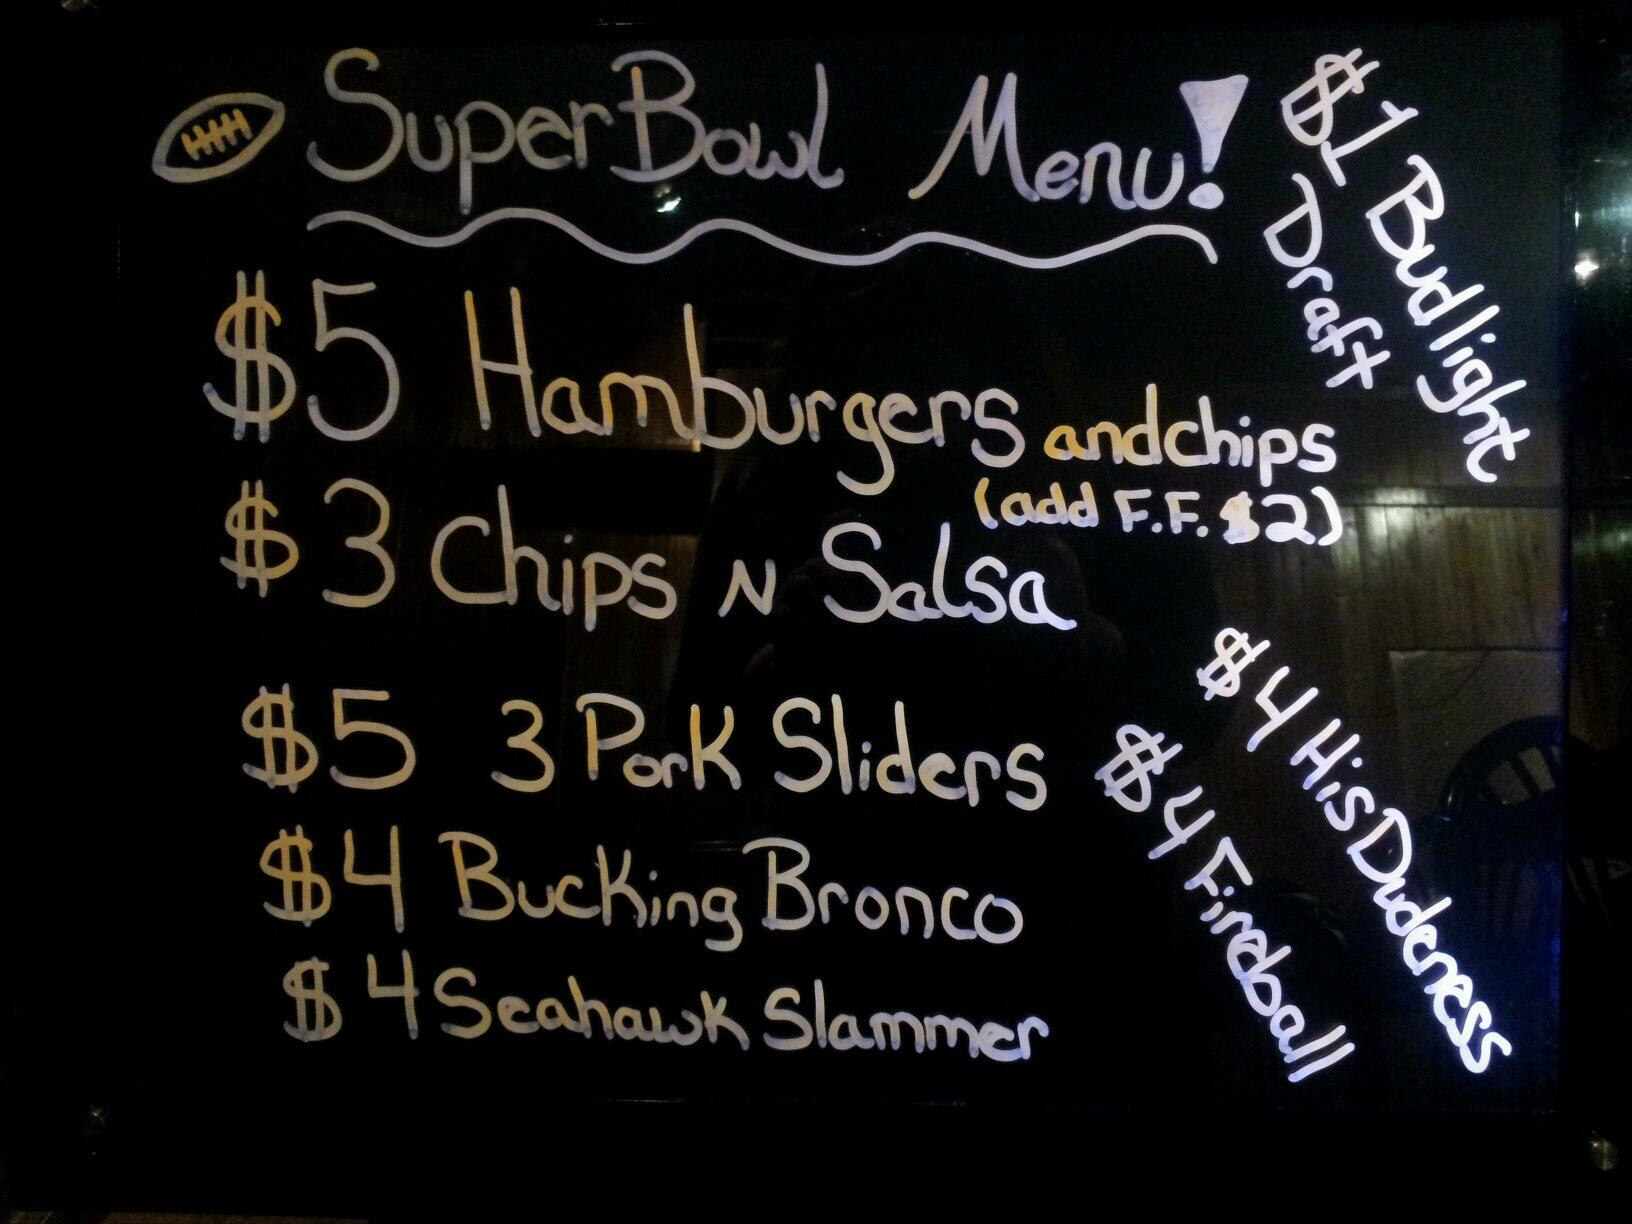 SuperBowl Menu!
$5 Hamburgers and chips
(add F.F. $2)
$3 Chips N Salsa
$5 3 Pork Sliders
$4 Bucking Bronco
$4 Seahawk Slammer
$1 Budlight
Draft
$4 HisDudeness
$4 Fireball